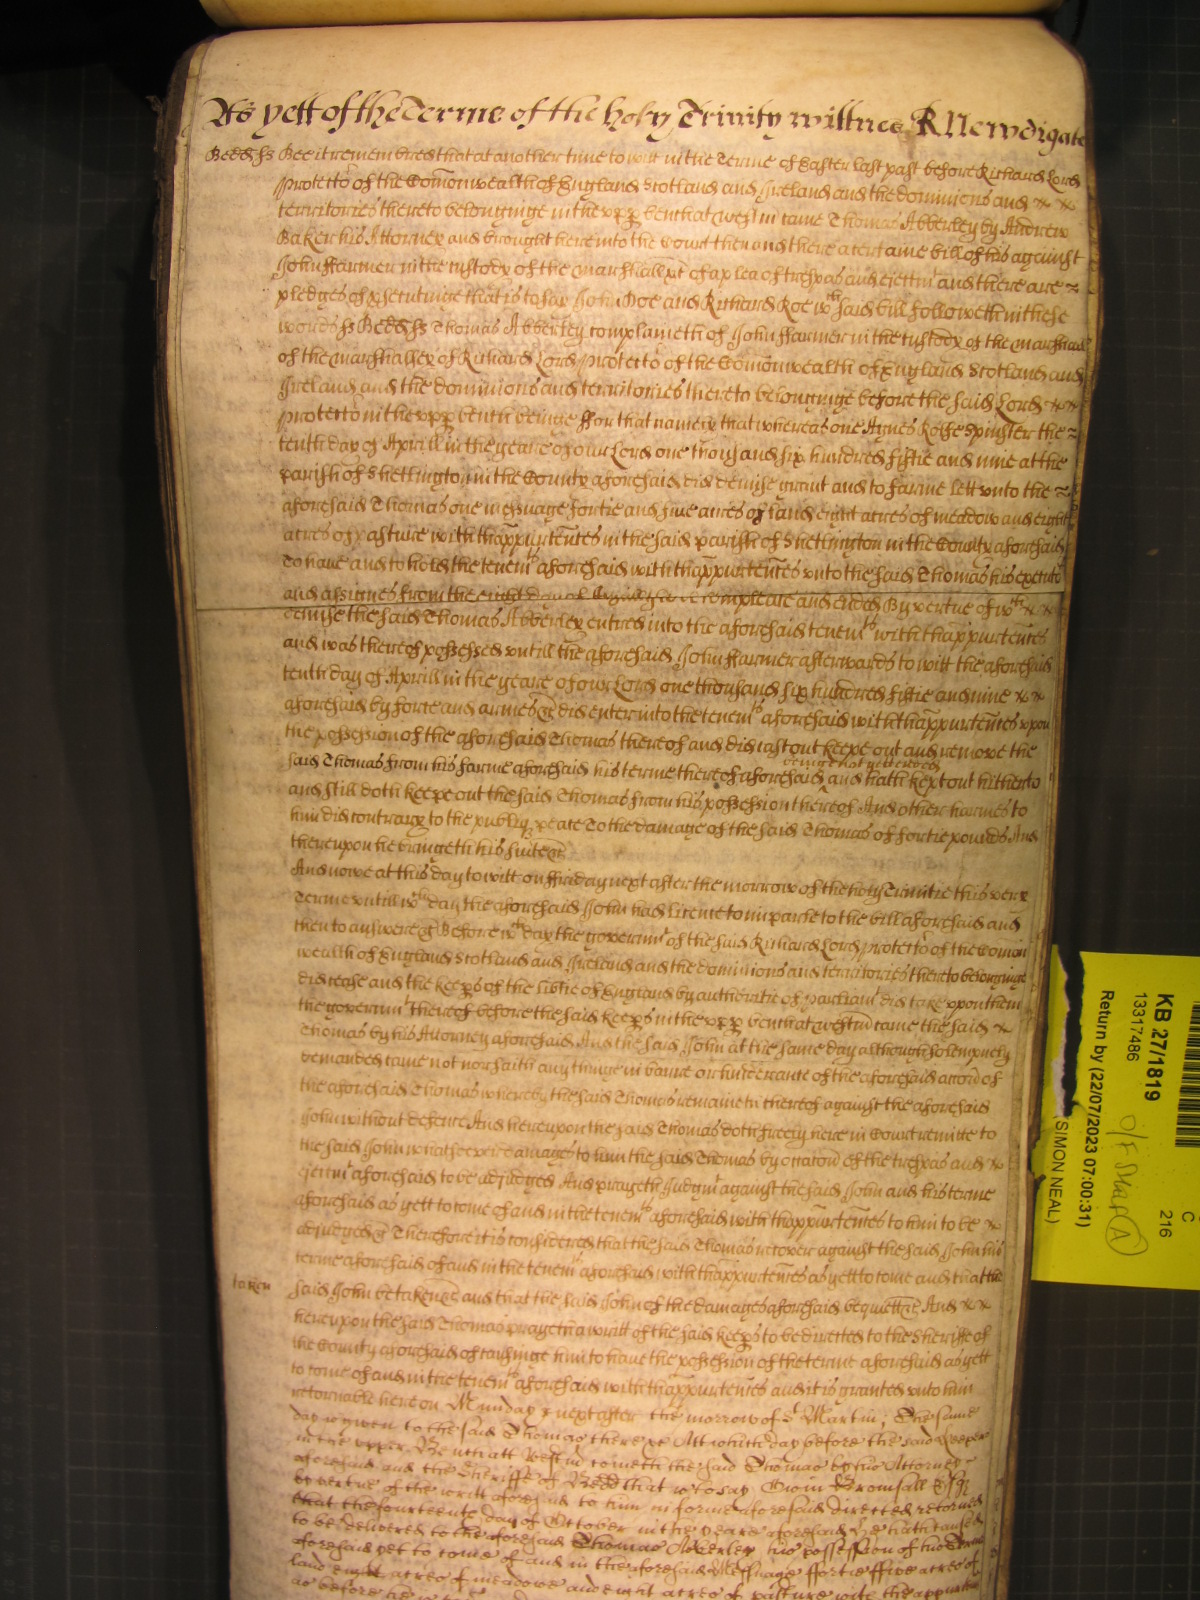 As yett of the Terme of the holy Trinity wittnes R Newdigate
Bedd ss Bee it remembred that at another time to witt in the Terme of Easter last past before Richard Lord
Protector of the Comonwealth of England Scotland and Ireland and the dominions and
territories thereto belonginge in the upp bench at westm came Thomas Abberley by Andrew
Baker his Attorney and brought here into the Court then and there a certaine bill of his against
John ffarmer in the custody of the marshall &c of a plea of trespas and ejectmt and there are
pledges of prosecutinge that is to say John Doe and Richard Roe wch said bill followeth in these
words ss Bedd ss Thomas Abberley complaineth of John ffarmer in the custody of the marshall
of the marshallsey of Richard Lord Protector of the Comonwealth of England Scotland and
Ireland and the dominions and territories thereto belonginge before the said Lord
Protector in the upp bench beinge ffor that namely that whereas one Agnes Rolfe Spinster the
tenth day of Aprill in the yeare of our Lord one thousand six hundred fiftie and nine at the
parish of Shetlington in the County aforesaid did demise grant and to farme lett unto the
aforesaid Thomas one messuage fortie and five acres of land eight acres of meadow and eight
acres of pasture with thappurtences in the said parish of Shetlington in the County aforesaid
To have and to hold the tenemts aforesaid with thappurtences unto the said Thomas his executors
and assignes from the eight day of compleate and ended By vertue of wch
demise the said Thomas Abberley entred into the aforesaid tenemts with thappurtences
and was thereof possessed untill the aforesaid John ffarmer afterwards to witt the aforesaid
tenth day of Aprill in the yeare of our Lord one thousand six hundred fiftie and nine
aforesaid by force and armes &c did enter into the tenemts aforesaid with thappurtences upon
the possession of the aforesaid Thomas thereof and did cast out keepe out and remove the
beinge not yett ended
said Thomas from his farme aforesaid his terme thereof aforesaid and hath kept out hitherto
and still doth keepe out the said Thomas from his possession thereof And other harmes to
him did contrary to the publiq peace To the damage of the said Thomas of fortie pounds And
thereupon he bringeth his suite &c
And nowe at this day to witt on ffriday next after the morrow of the holy Trinitie this very
Terme untill wch day the aforesaid John had licence to imparle to the bill aforesaid and
then to answere &c Before wch day the governmt of the said Richard Lord Protector of the Comon
wealth of England Scotland and Ireland and the dominions and territories thereto belonginge
did cease and the keeps of the libtie of England by authoritie of Parliamt did take upon them
the governmt thereof before the said keeps in the upp bench at westm came the said
Thomas by his Attorney aforesaid And the said John at the same day although solempnely
demanded came not nor saith any thinge in barre or hinderance of the aforesaid accon of
the aforesaid Thomas whereby the said Thomas remaineth thereof against the aforesaid
John without defence And hereupon the said Thomas doth freely here in Court remitte to
the said John whatsoever damages to him the said Thomas by occasion of the trespas and
ejectmt aforesaid to be adjudged And prayeth Judgmt against the said John and his terme
aforesaid as yett to come of and in the tenemts aforesaid with thappurtences to him to be
adjudged &c Therefore it is considered that the said Thomas recover against the said John his
terme aforesaid of and in the tenemts aforesaid with thappurtences as yett to come and that the
taken
said John be taken &c and that the said John of the damages aforesaid be quiett &c And
hereupon the said Thomas prayeth a writt of the said keeps to be directed to the Sheriffe of
the County aforesaid of causinge him to have the possession of the terme aforesaid as yett
to come of and in the tenemts aforesaid with thappurtences and it is granted unto him
retornable here on Munday next after the morrow of St Martin, The same
day is given to the said Thomas there &c Att which day before the said Keeper
in the upper Bench att Westm cometh the said Thomas by his Attorney
aforesaid and the Sheriffe of Bedd that is to say Thom Bromsall Esqr
by vertue of the writt aforesaid to him in forme aforesaid directed retorned
that the fourteenth day of October in the yeare aforesaid he hath caused
to be delivered to the aforesaid Thomas Abberley his possession of his Terme
aforesaid yet to come of and in the aforesaid Messuage ffortie ffive acres of
land eight acres of meadowe and eight acres of pasture with the appurten
as before he
KB 27/1819
13317486
Return by (22/07/2023 07:00:31)
(SIMON NEAL)
C
216
O/F Shelf A